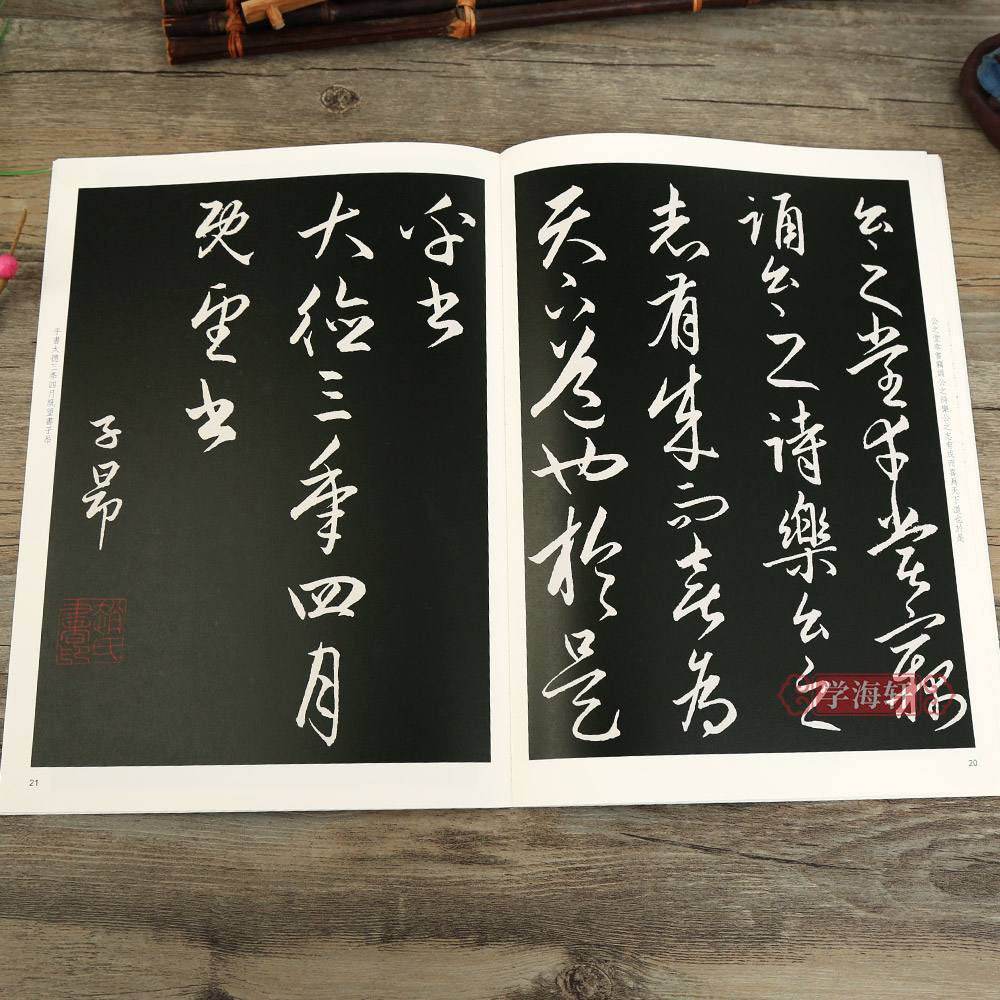 公之堂幸嘗竊
誦公之詩樂公之
志有成而喜為
天下道也於是
公之堂幸嘗竊誦公之詩樂公之志有成而喜爲天下道也於是
学海轩
20
乎書
大德三年四月
既望書
子昂
趙氏書印
乎書大德三年四月既望書子昂
21